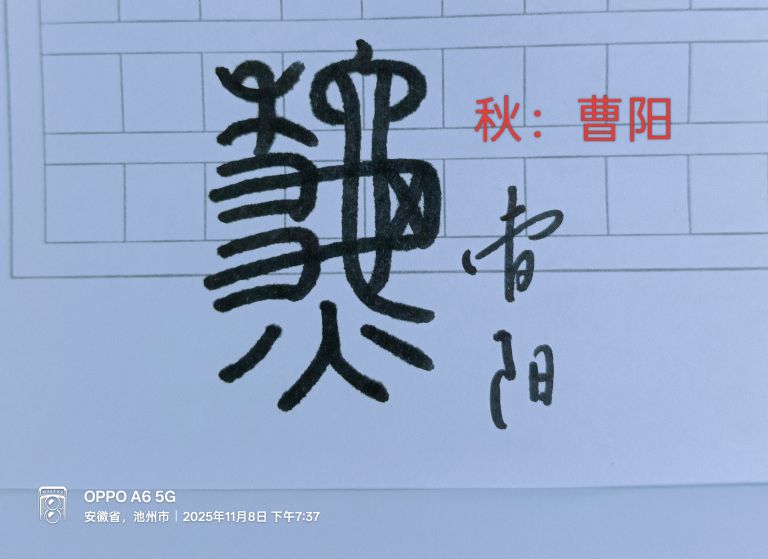 秋：曹阳
曹
阳
OPPO A6 5G
安徽省，池州市｜2025年11月8日 下午7:37